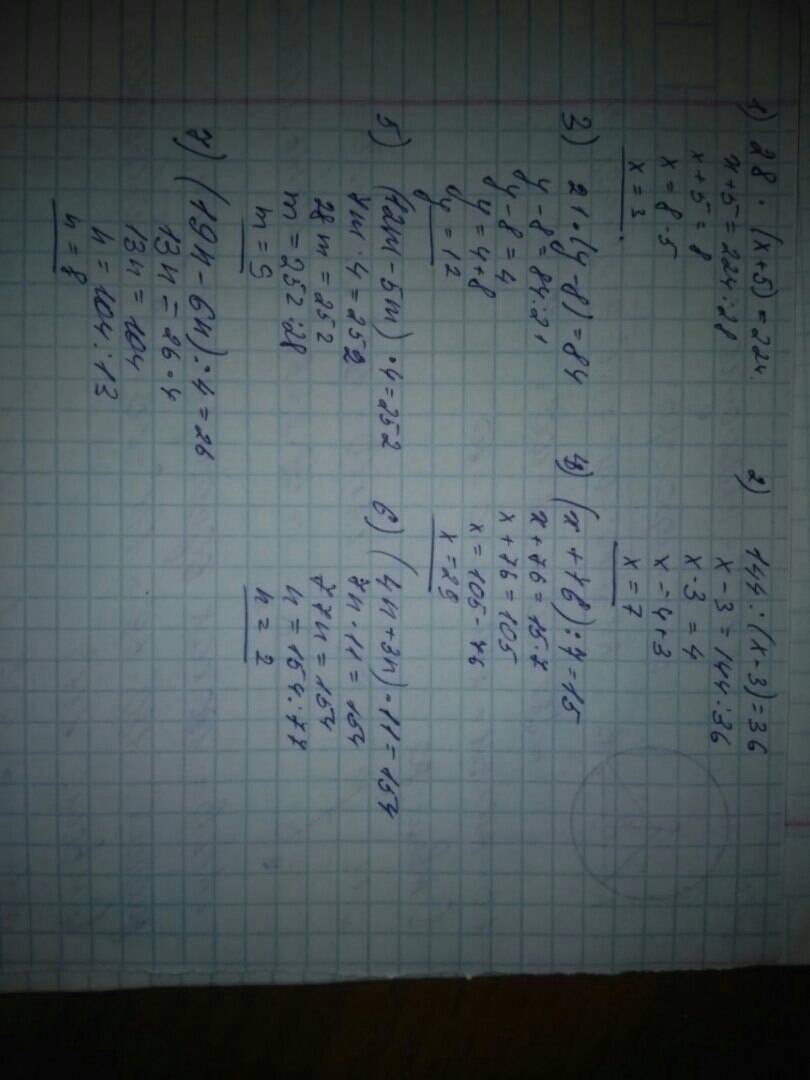 1) 28 · (x+5) = 224.
x+5 = 224:28
x+5 = 8
x = 8-5
x = 3.
2) 144 : (x-3) = 36
x-3 = 144:36
x-3 = 4
x = 4+3
x = 7
3) 21 · (y-8) = 84
y-8 = 84:21
y-8 = 4
y = 4+8
y = 12
4) (x+76) : 7 = 15
x+76 = 15·7
x+76 = 105
x = 105-76
x = 29
5) (12m-5m) · 4 = 252
7m · 4 = 252
28m = 252
m = 252:28
m = 9
6) (4n+3n) · 11 = 154
7n · 11 = 154
77n = 154
n = 154:77
n = 2
7) (19n-6n) : 4 = 26
13n = 26·4
13n = 104
n = 104:13
n = 8